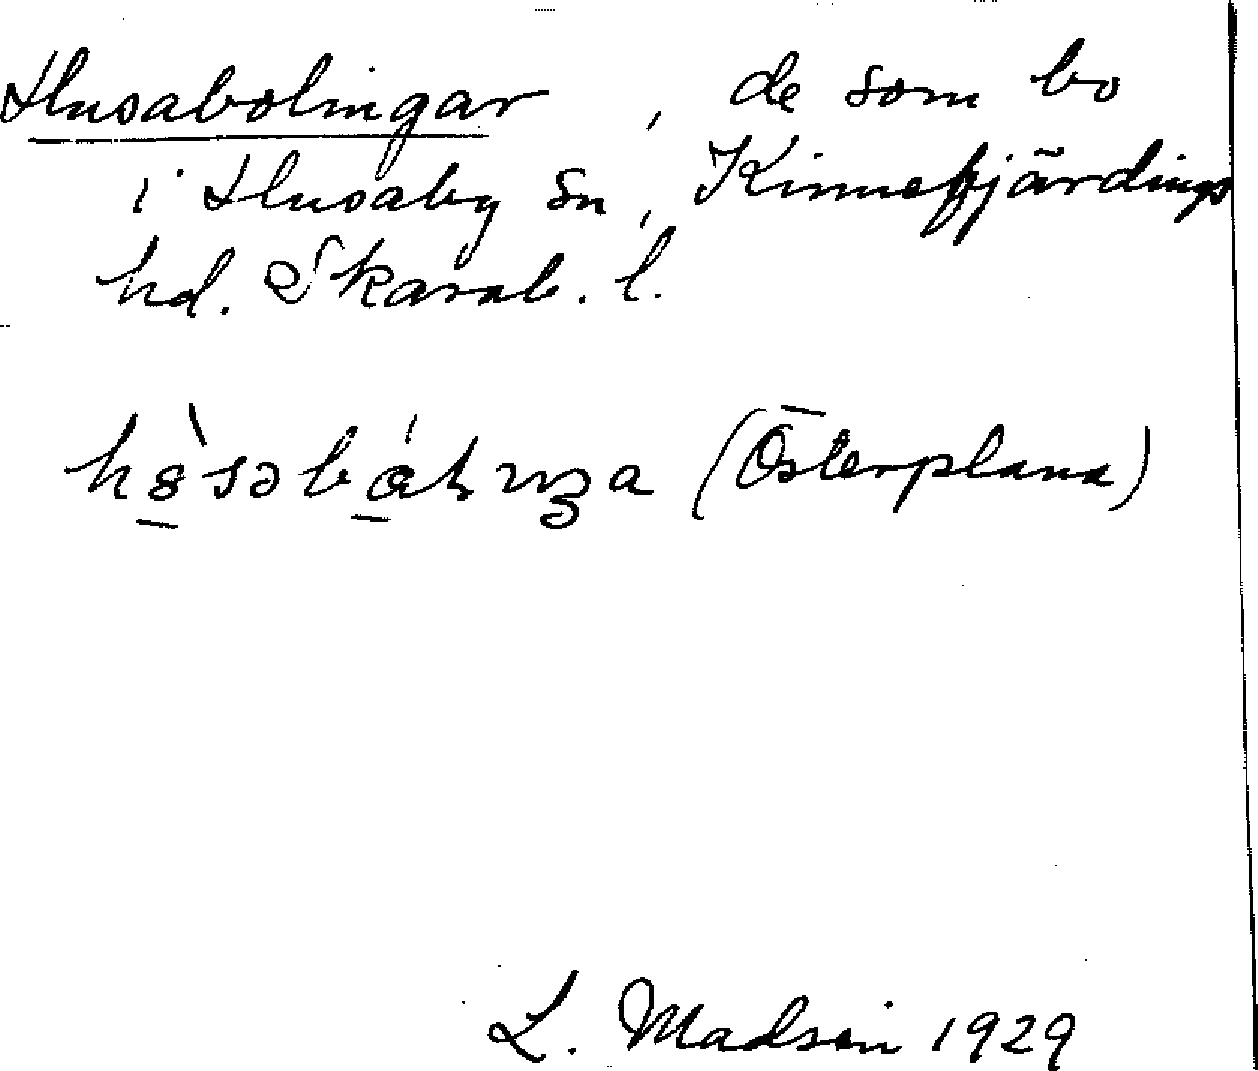 Husabolingar, de som bo
i Husaby sn, Kinnefjärdings
hd. Skarab. l.
(Österplana)
L. Madsén 1929